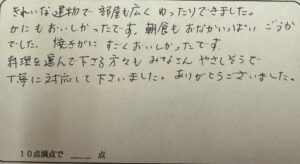 きれいな建物で 部屋も広く ゆったりできました。
かにもおいしかったです。朝食もおなかいっぱい ごうか
でした。焼きがに すごくおいしかったです。
料理を運んで下さる方々も みなさん やさしそうで
丁寧に対応して下さいました。ありがとうございました。
10点満点で ____ 点